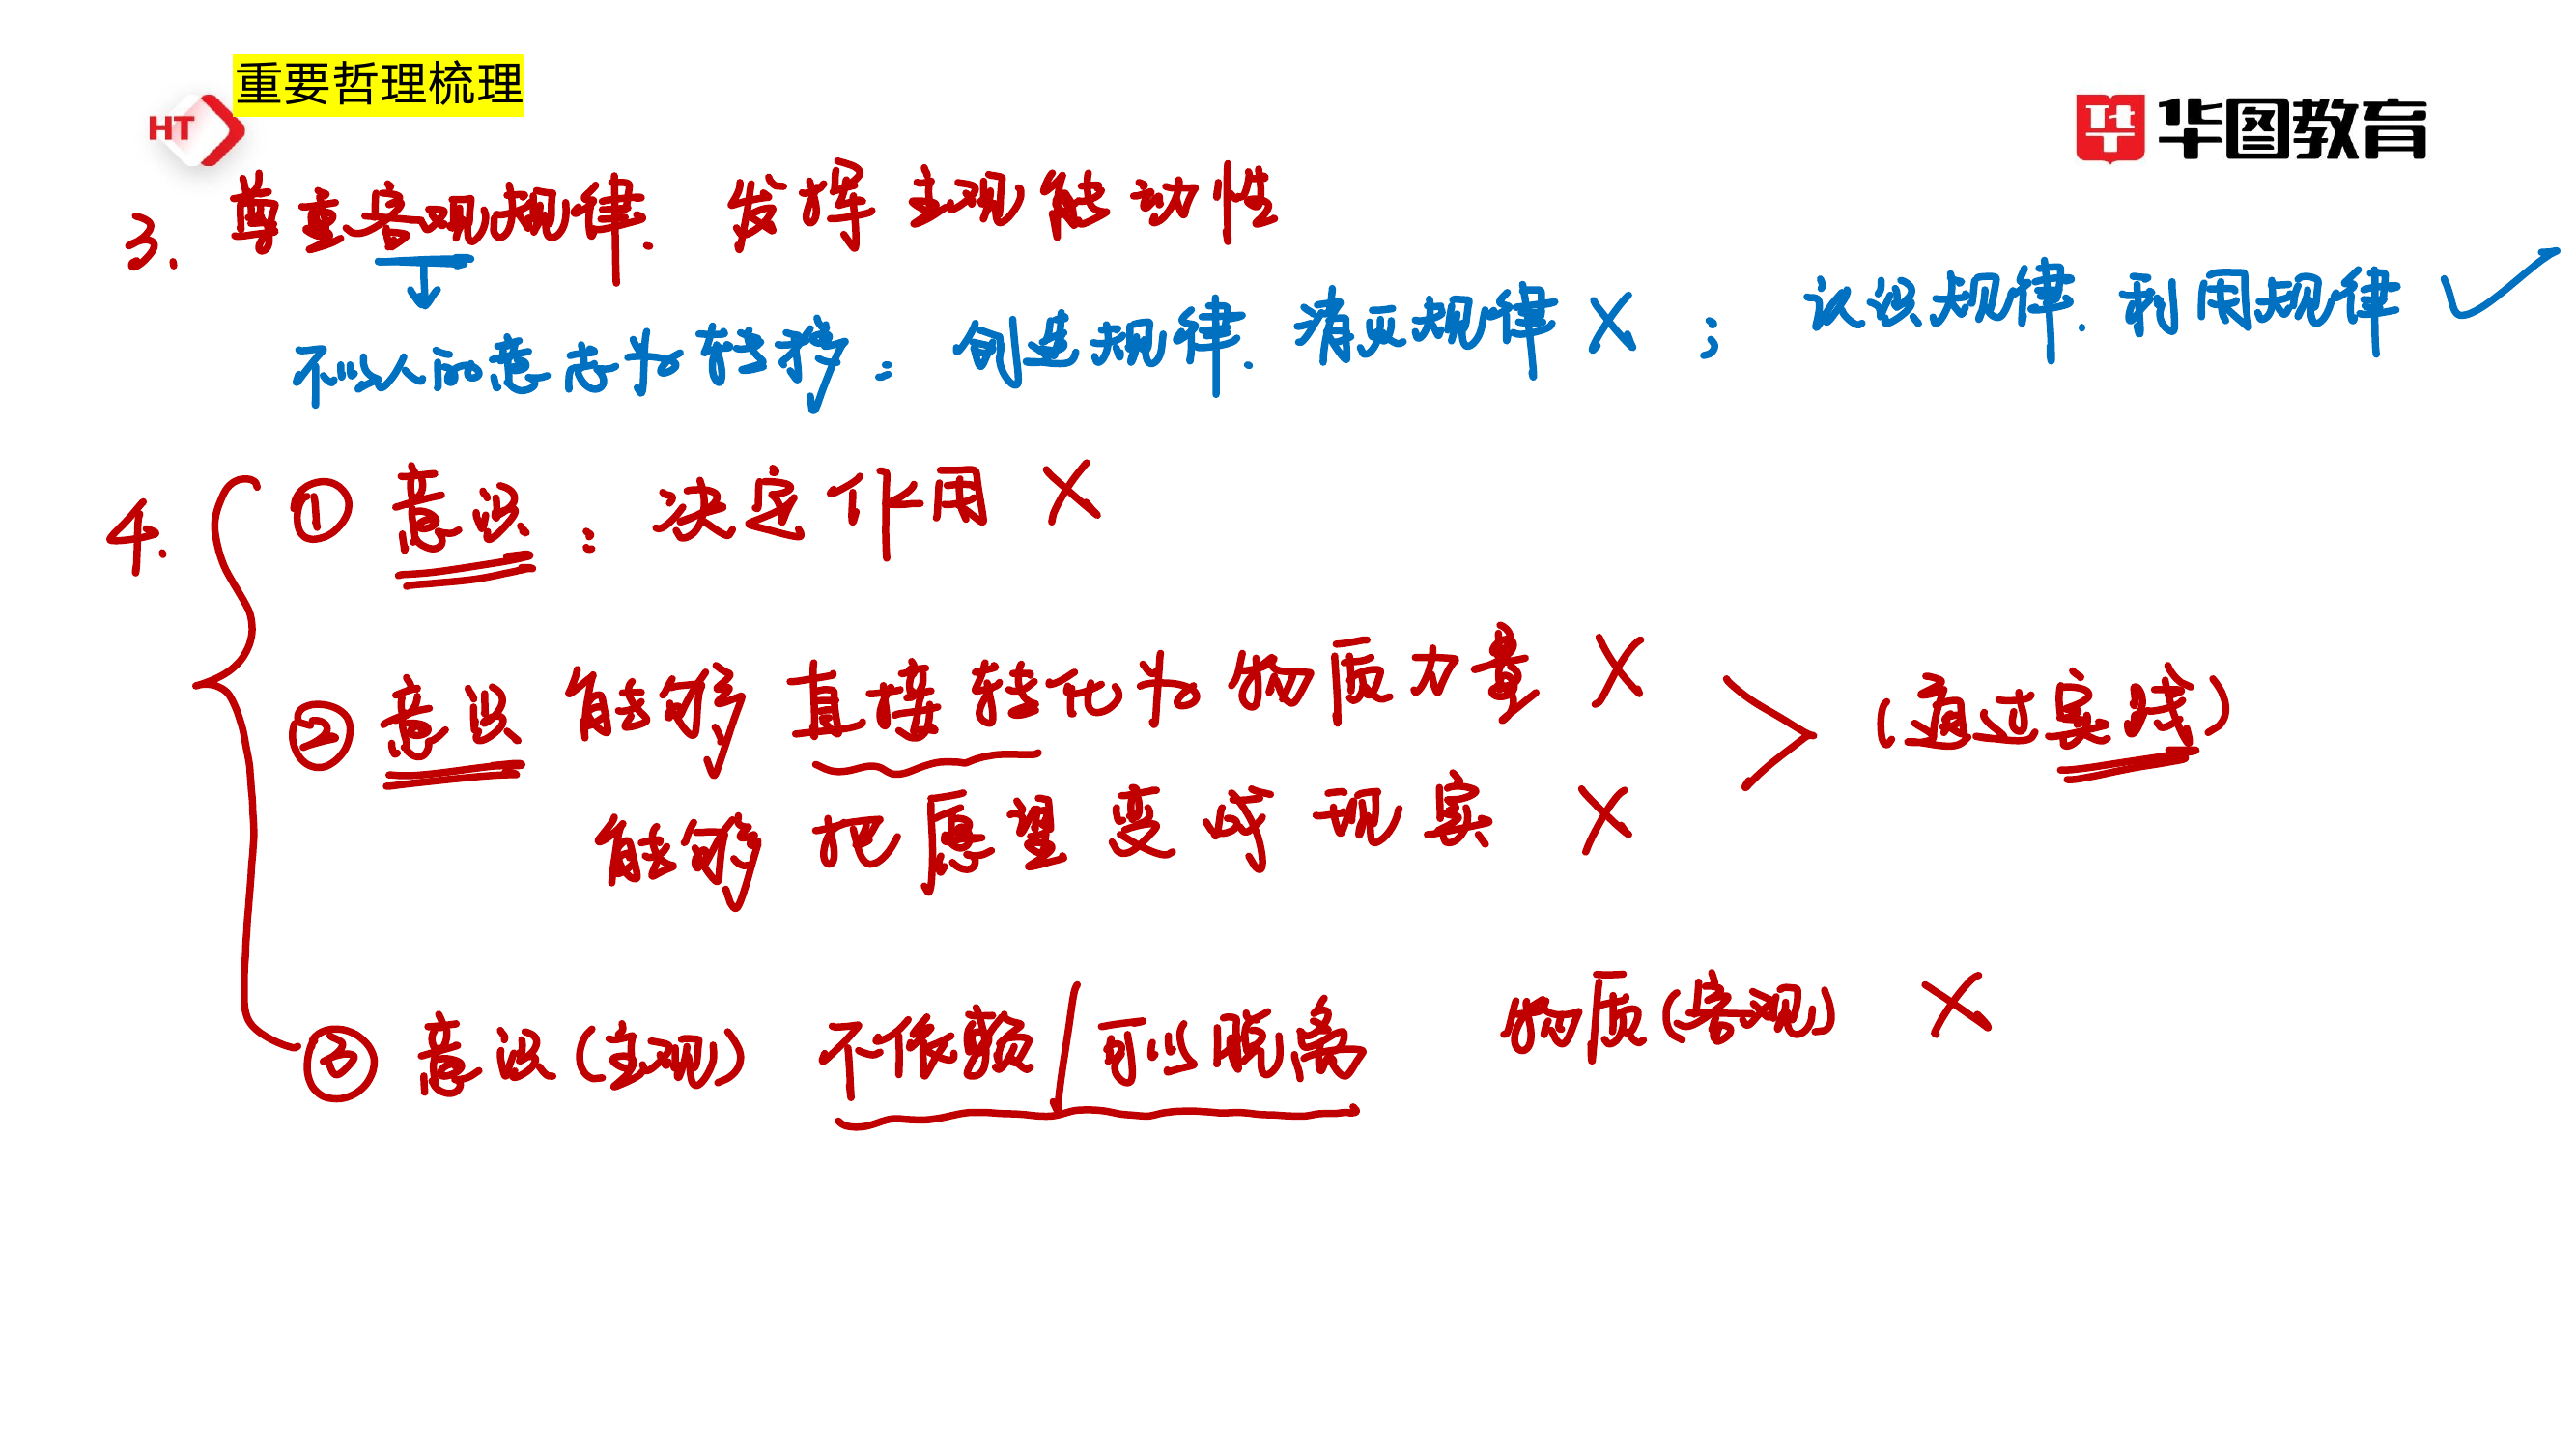 重要哲理梳理
HT
华图教育
3. 尊重客观规律. 发挥主观能动性
不以人的意志为转移: 创造规律. 消灭规律 X ; 认识规律. 利用规律 ✓
4.
① 意识: 决定作用 X
② 意识 能够 直接转化为物质力量 X
(通过实践)
能够 把愿望变成现实 X
③ 意识(主观) 不依赖/可以脱离 物质(客观) X